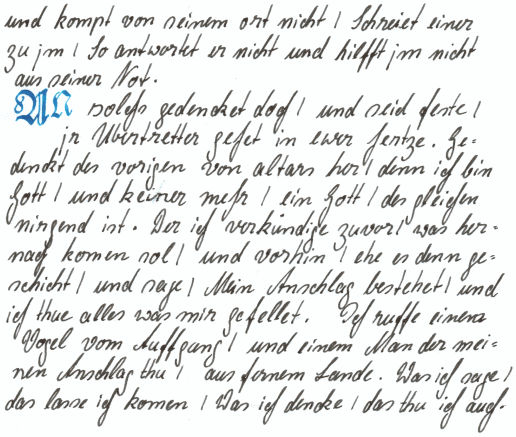 und kompt von seinem ort nicht / Schreiet einer
zu jm / So antwortet er nicht und hilfft jm nicht
aus seiner Not.
AN solchs gedencket doch / und seid feste /
jr Ubertretter gehet in ewer hertze. Ge=
denckt des vorigen von altars her / denn ich bin
Gott / und keiner mehr / ein Gott / des gleichen
nirgend ist. Der ich verkündige zuvor / was her=
nach komen sol / und vorhin / ehe es denn ge=
schicht / und sage / Mein Anschlag bestehet / und
ich thue alles was mir gefellet. Ich ruffe einem
Vogel vom Auffgang / und einem Man der mei=
nen Anschlag thu / aus fernem Lande. Was ich sage /
das lasse ich komen / Was ich dencke / das thu ich auch.